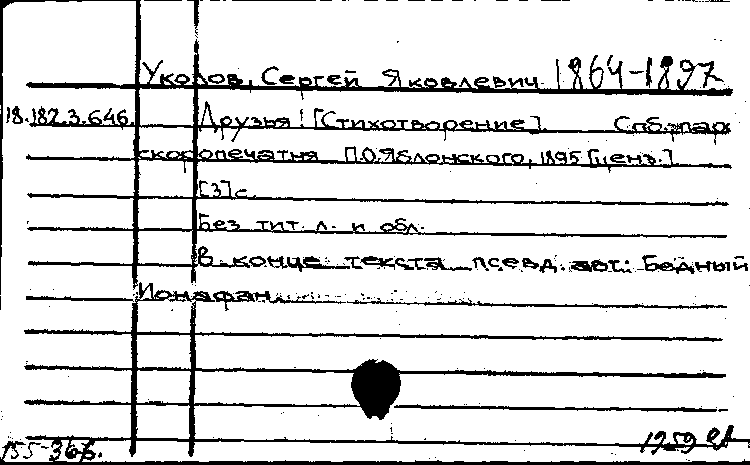 Уколов, Сергей Яковлевич 1864-1897
18.182.3.646. Друзья! [Стихотворение]. Спб., пар.
скоропечатня П.О. Яблонского, 1895 [ценз.]
[3] с.
Без тит. л. и обл.
В конце текста псевд. авт.: Бедный
Ионафан.
155-36б. 1959